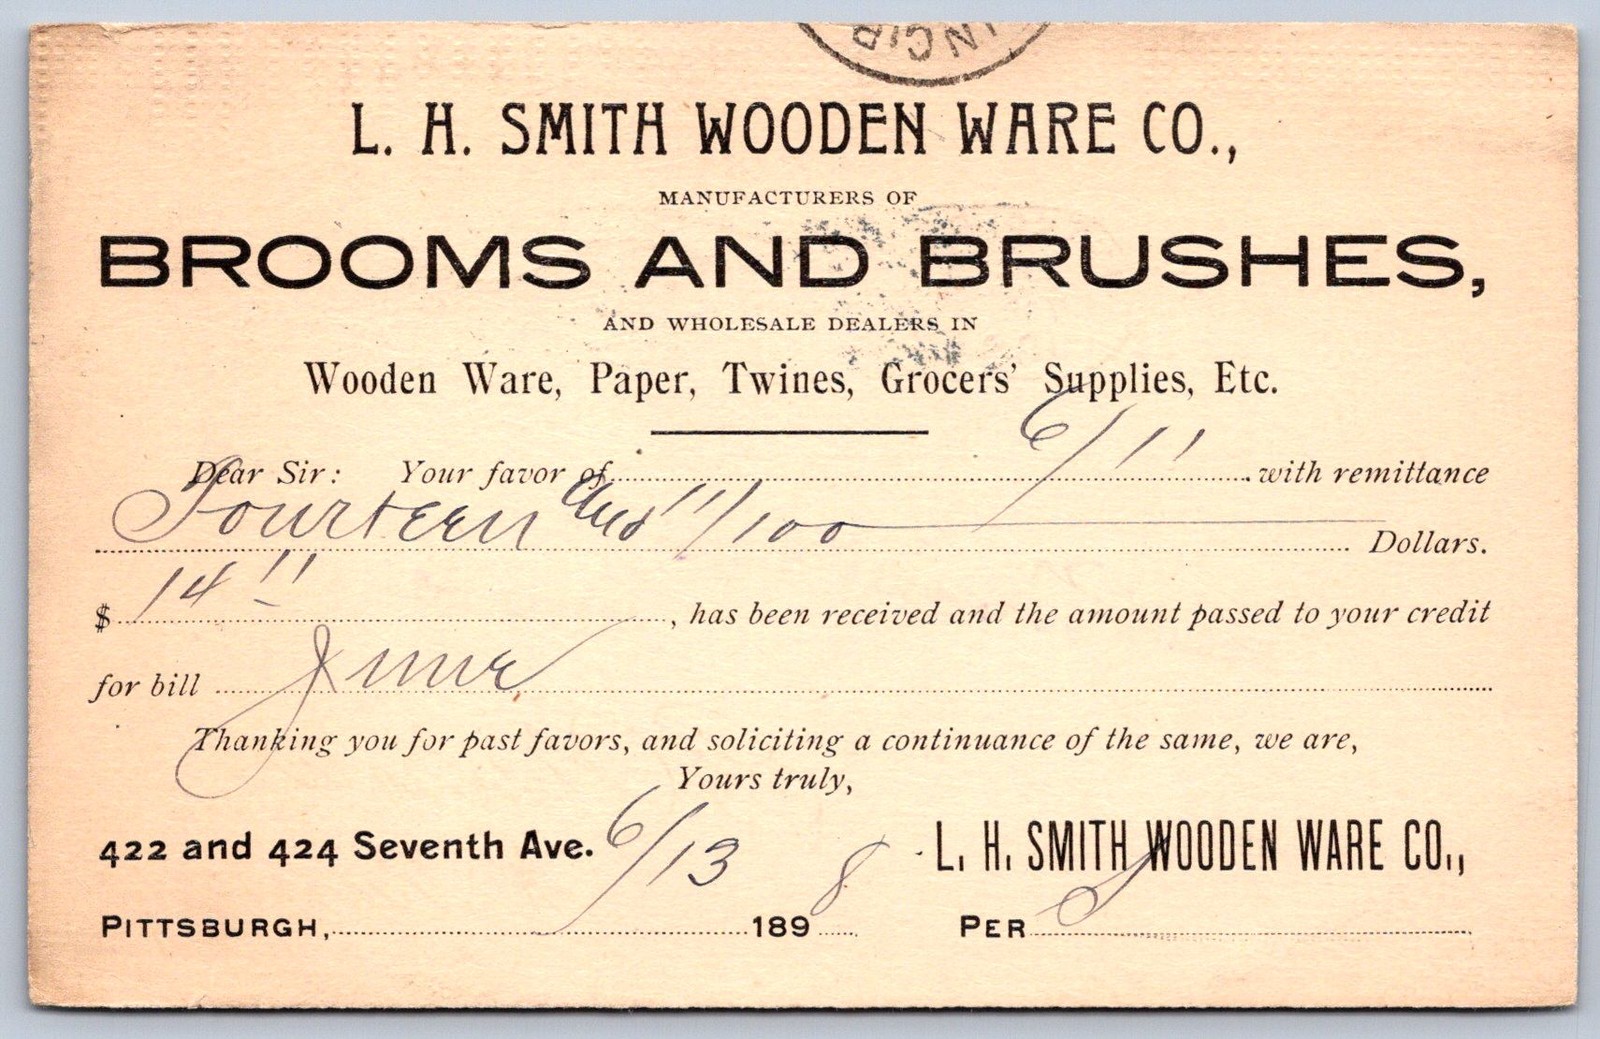 L. H. SMITH WOODEN WARE CO.,
MANUFACTURERS OF
BROOMS AND BRUSHES,
AND WHOLESALE DEALERS IN
Wooden Ware, Paper, Twines, Grocers' Supplies, Etc.
Dear Sir: Your favor of 6/11 with remittance
Fourteen and 11/100 Dollars.
$ 14 11, has been received and the amount passed to your credit
for bill June
Thanking you for past favors, and soliciting a continuance of the same, we are,
Yours truly,
422 and 424 Seventh Ave. L. H. SMITH WOODEN WARE CO.,
PITTSBURGH, 6/13 1898 PER